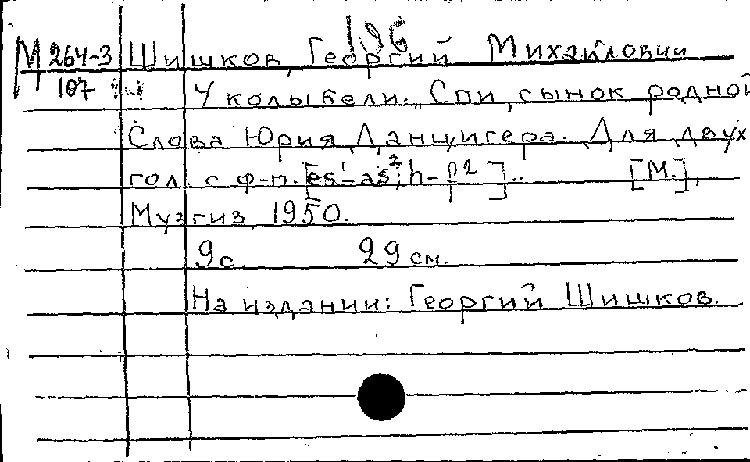 196
М 264-3 Шишков, Георгий Михайлович
107 У колыбели. Спи, сынок родной
Слова Юрия Данцигера. Для двух
гол. с ф-п. [es¹-as²; h-f²]. [М.],
Музгиз, 1950.
9с. 29 см.
На издании: Георгий Шишков.